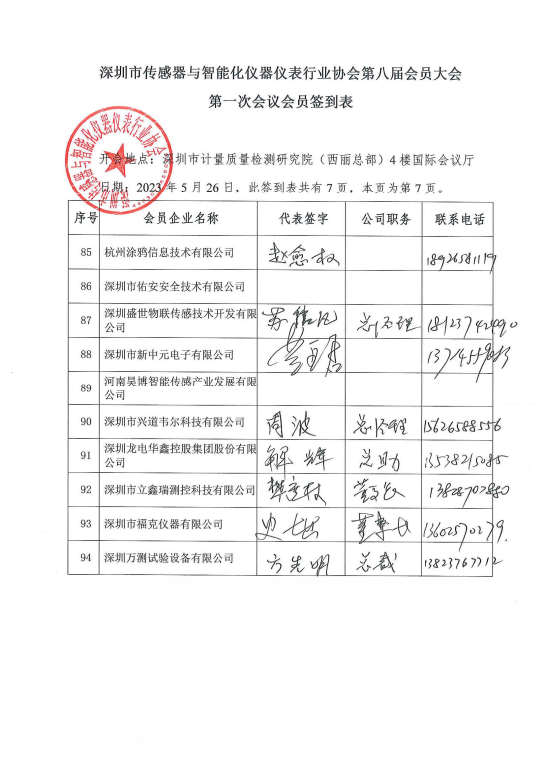 深圳市传感器与智能化仪器仪表行业协会第八届会员大会
第一次会议会员签到表
开会地点：深圳市计量质量检测研究院（西丽总部）4楼国际会议厅
日期：2023年5月26日，此签到表共有7页，本页为第7页。
序号 会员企业名称 代表签字 公司职务 联系电话
85 杭州涂鸦信息技术有限公司 18926581119
86 深圳市佑安安全技术有限公司
87 深圳盛世物联传感技术开发有限公司 总经理
88 深圳市新中元电子有限公司
89 河南昊博智能传感产业发展有限公司
90 深圳市兴道韦尔科技有限公司 周波 总经理 15626588556
91 深圳龙电华鑫控股集团股份有限公司 解辉 总助 13538215085
92 深圳市立鑫瑞测控科技有限公司 13828707880
93 深圳市福克仪器有限公司 董事长 13602570279
94 深圳万测试验设备有限公司 方先明 总裁 13823767712